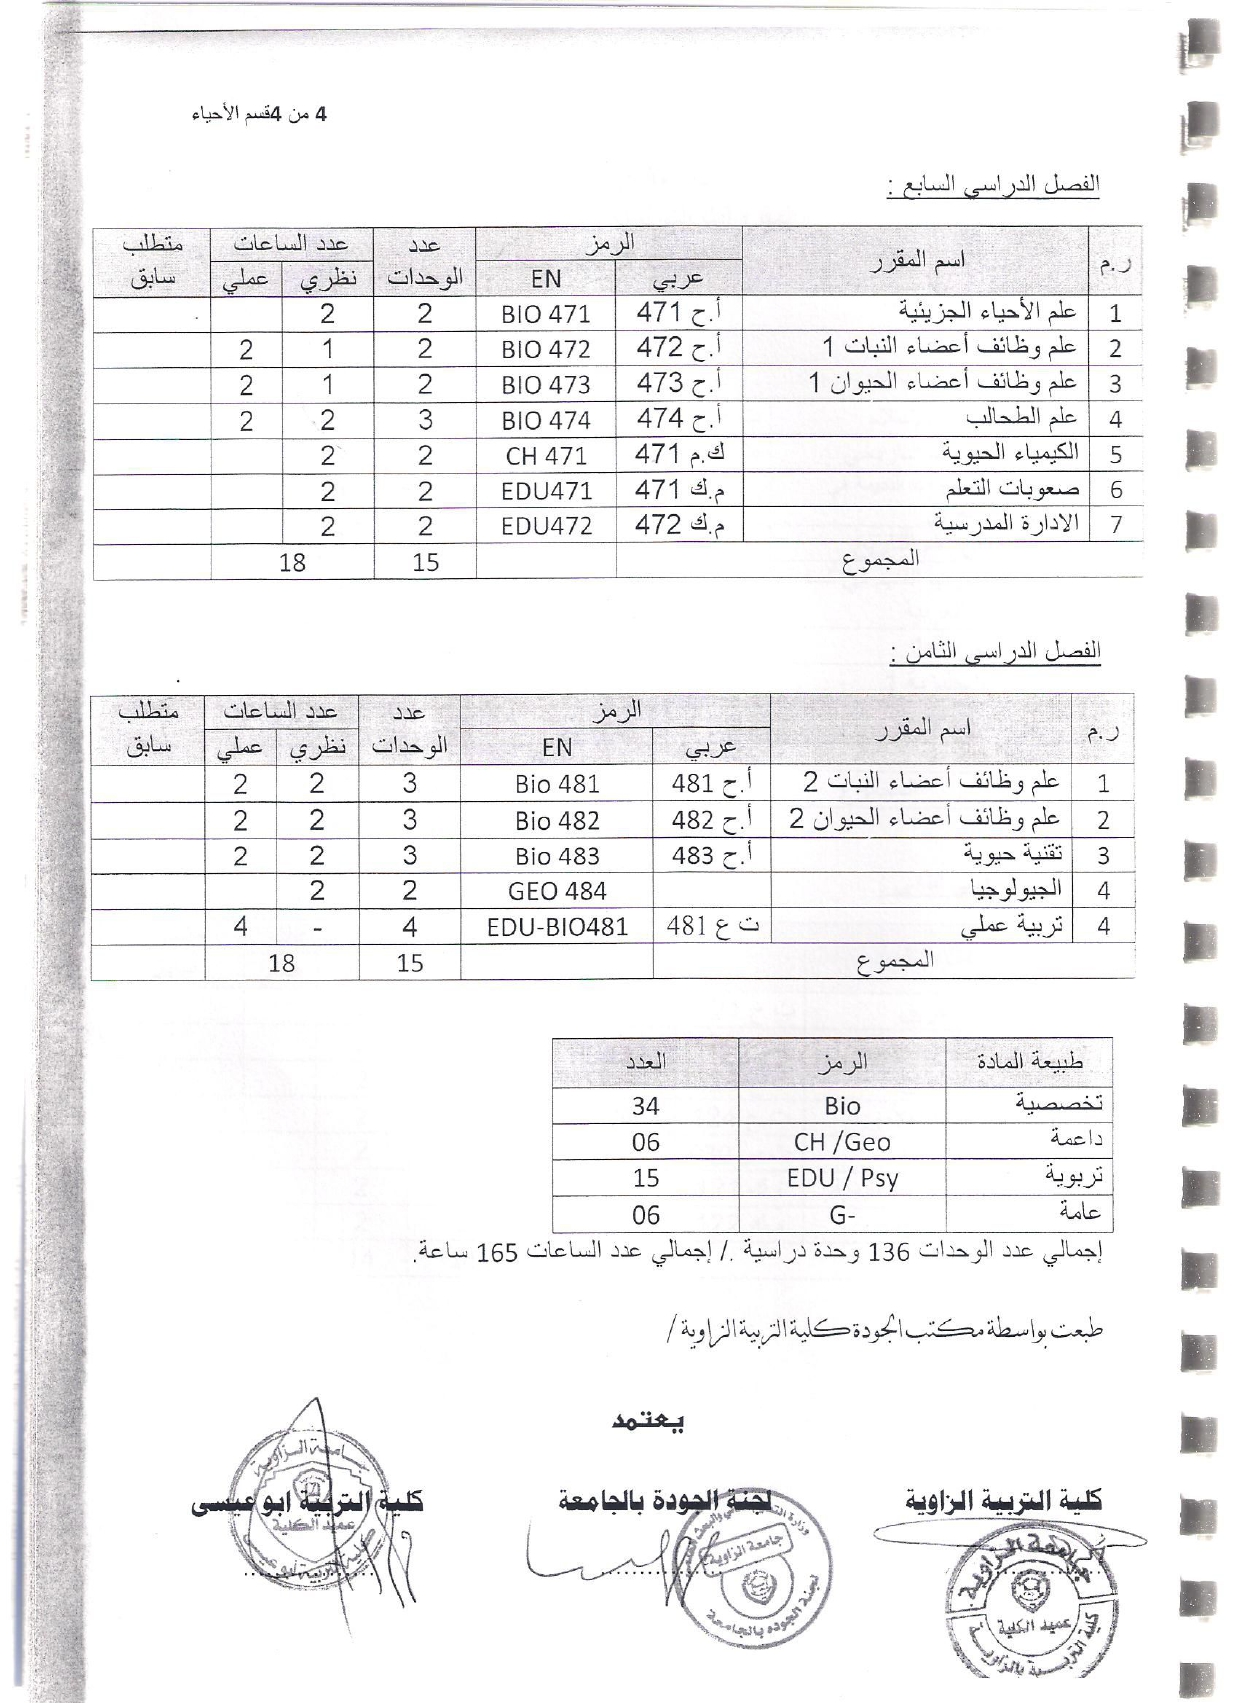 4 من 4قسم الأحياء
الفصل الدراسي السابع :
ر.م اسم المقرر الرمز عدد الوحدات عدد الساعات متطلب سابق
عربي EN نظري عملي
1 علم الأحياء الجزيئية أ.ح 471 BIO 471 2 2
2 علم وظائف أعضاء النبات 1 أ.ح 472 BIO 472 2 1 2
3 علم وظائف أعضاء الحيوان 1 أ.ح 473 BIO 473 2 1 2
4 علم الطحالب أ.ح 474 BIO 474 3 2 2
5 الكيمياء الحيوية ك.م 471 CH 471 2 2
6 صعوبات التعلم م.ك 471 EDU471 2 2
7 الادارة المدرسية م.ك 472 EDU472 2 2
المجموع 15 18
الفصل الدراسي الثامن :
ر.م اسم المقرر الرمز عدد الوحدات عدد الساعات متطلب سابق
عربي EN نظري عملي
1 علم وظائف أعضاء النبات 2 أ.ح 481 Bio 481 3 2 2
2 علم وظائف أعضاء الحيوان 2 أ.ح 482 Bio 482 3 2 2
3 تقنية حيوية أ.ح 483 Bio 483 3 2 2
4 الجيولوجيا GEO 484 2 2
4 تربية عملي ت ع 481 EDU-BIO481 4 - 4
المجموع 15 18
طبيعة المادة الرمز العدد
تخصصية Bio 34
داعمة CH /Geo 06
تربوية EDU / Psy 15
عامة G- 06
إجمالي عدد الوحدات 136 وحدة دراسية ./ إجمالي عدد الساعات 165 ساعة.
طبعت بواسطة مكتب الجودة كلية التربية الزاوية /
يعتمد
كلية التربية الزاوية لجنة الجودة بالجامعة كلية التربية ابو عيسى
جامعة الزاوية
عميد الكلية
كلية التربية بالزاوية
جامعة الزاوية
لجنة الجودة بالجامعة
جامعة الزاوية
عميد الكلية
كلية التربية ابو عيسى